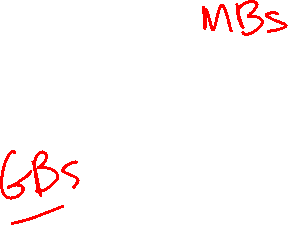 MBs
GBs